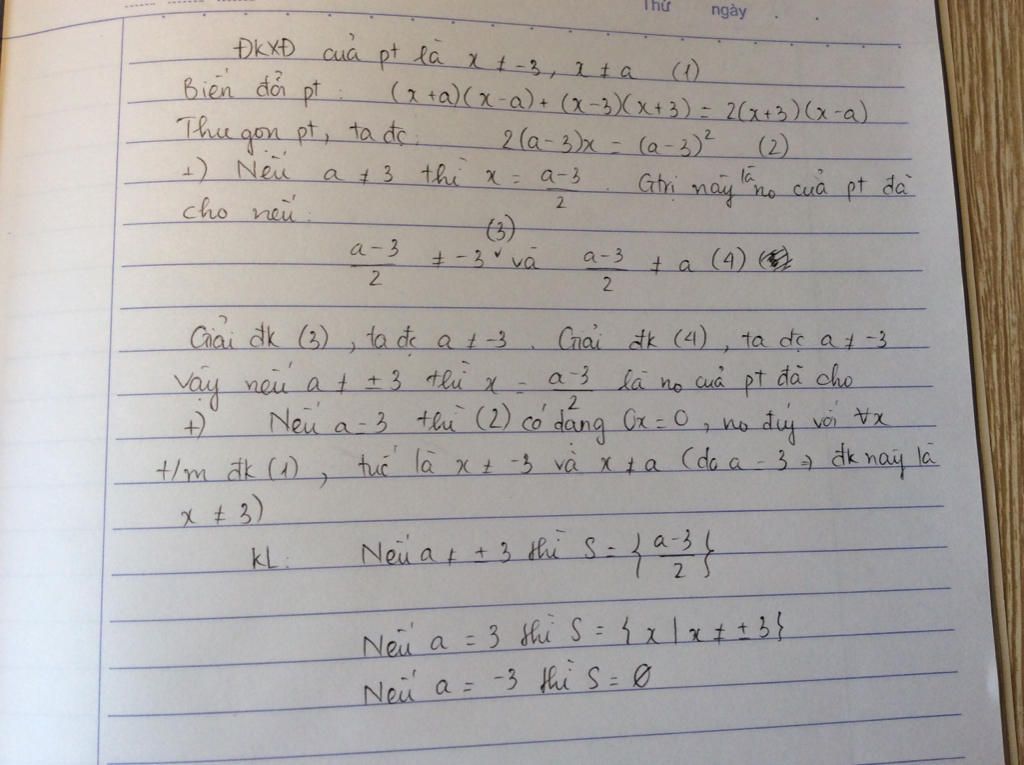 Thứ ngày . .
ĐKXĐ của pt là x ≠ -3, x ≠ a (1)
Biến đổi pt: (x+a)(x-a) + (x-3)(x+3) = 2(x+3)(x-a)
Thu gọn pt, ta đc: 2(a-3)x = (a-3)² (2)
+) Nếu a ≠ 3 thì x = (a-3)/2. Gtrị này là no của pt đã
cho nếu:
(a-3)/2 ≠ -3 (3) và (a-3)/2 ≠ a (4)
Giải đk (3), ta đc a ≠ -3. Giải đk (4), ta đc a ≠ -3
Vậy nếu a ≠ ±3 thì x = (a-3)/2 là no của pt đã cho
+) Nếu a = 3 thì (2) có dạng 0x = 0, no đúg với ∀x
t/m đk (1), tức là x ≠ -3 và x ≠ a (do a = 3 ⇒ đk này là
x ≠ 3)
KL: Nếu a ≠ ±3 thì S = {(a-3)/2}
Nếu a = 3 thì S = {x | x ≠ ±3}
Nếu a = -3 thì S = Ø